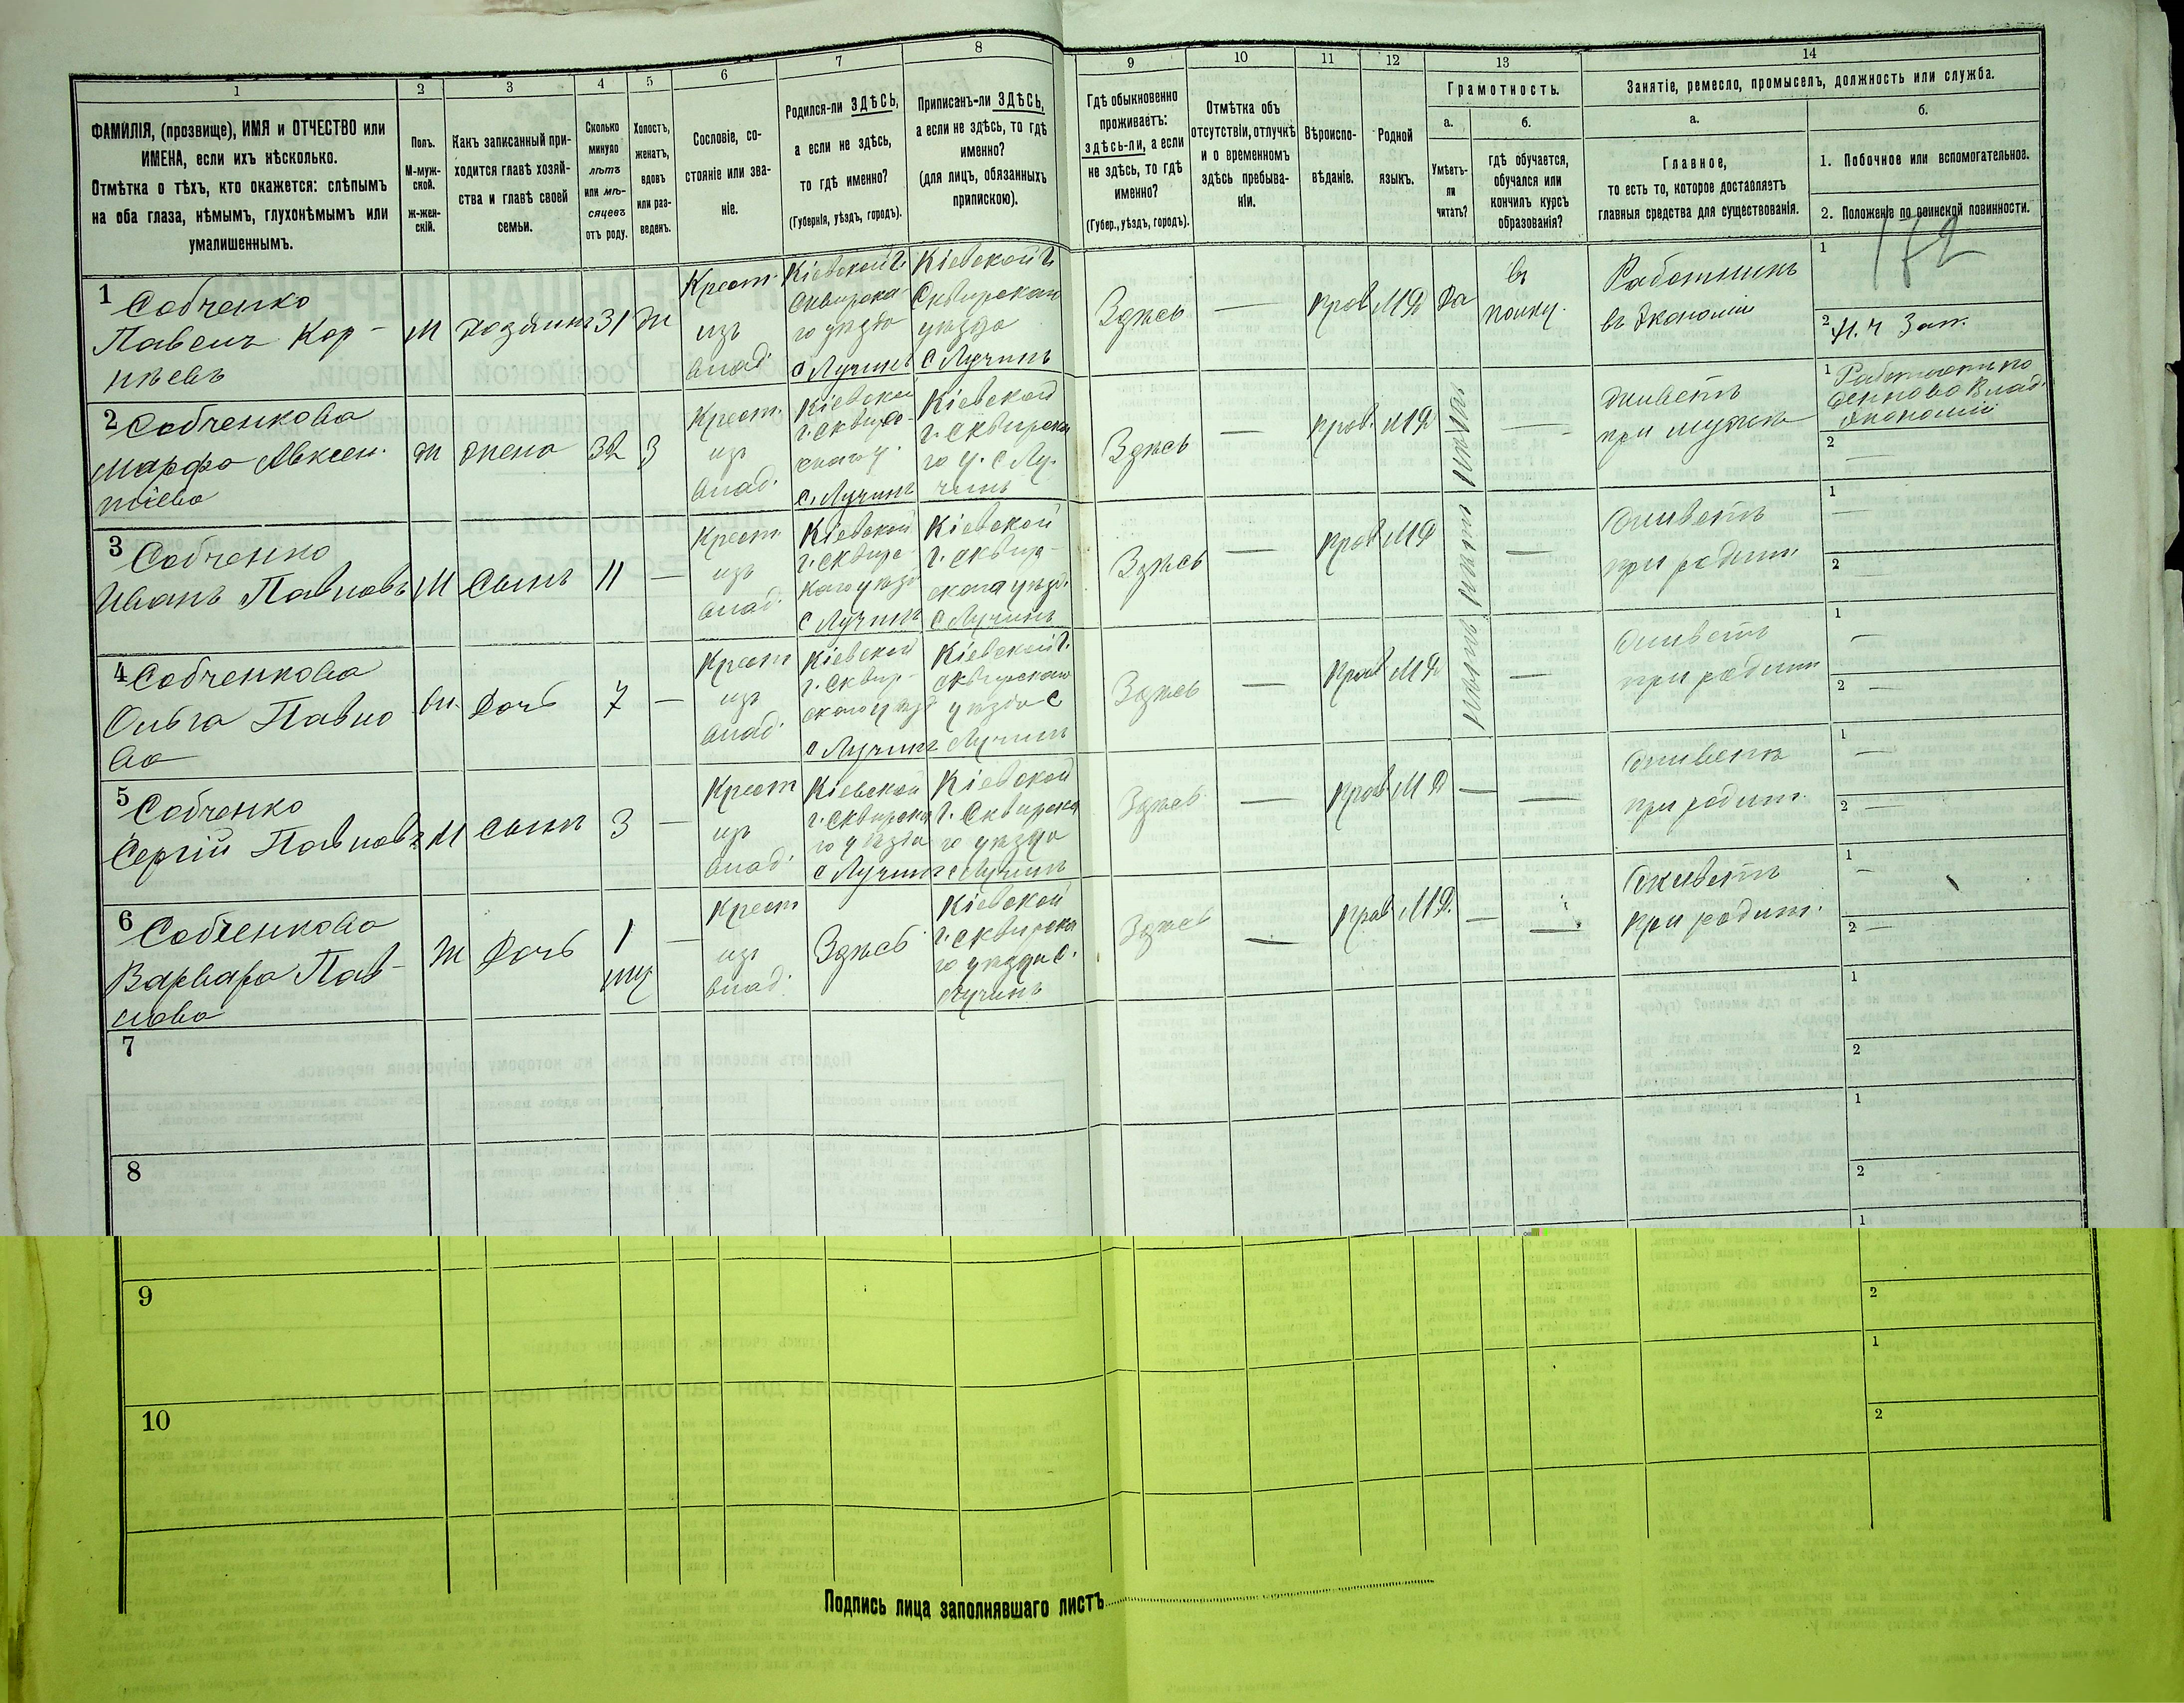 1
2
3
4
5
6
7
8
9
10
11
12
13
14
ФАМИЛІЯ, (прозвище), ИМЯ и ОТЧЕСТВО или
ИМЕНА, если ихъ нѣсколько.
Отмѣтка о тѣхъ, кто окажется: слѣпымъ
на оба глаза, нѣмымъ, глухонѣмымъ или
умалишеннымъ.
Полъ.
М-муж-
ской.
ж-жен-
скій.
Какъ записанный при-
ходится главѣ хозяй-
ства и главѣ своей
семьи.
Сколько
минуло
лѣтъ
или мѣ-
сяцевъ
отъ роду.
Холостъ,
женатъ,
вдовъ
или раз-
веденъ.
Сословіе, со-
стояніе или зва-
ніе.
Родился-ли ЗДѢСЬ,
а если не здѣсь,
то гдѣ именно?
(Губернія, уѣздъ, городъ).
Приписанъ-ли ЗДѢСЬ,
а если не здѣсь, то гдѣ
именно?
(для лицъ, обязанныхъ
припискою).
Гдѣ обыкновенно
проживаетъ:
здѣсь-ли, а если
не здѣсь, то гдѣ
именно?
(Губер., уѣздъ, городъ).
Отмѣтка объ
отсутствіи, отлучкѣ
и о временномъ
здѣсь пребыва-
ніи.
Вѣроиспо-
вѣданіе.
Родной
языкъ.
Грамотность.
а.
Умѣетъ-
ли
читать?
б.
гдѣ обучается,
обучался или
кончилъ курсъ
образованія?
Занятіе, ремесло, промыселъ, должность или служба.
а.
Главное,
то есть то, которое доставляетъ
главныя средства для существованія.
б.
1. Побочное или вспомогательное.
2. Положеніе по воинской повинности.
172
1
Собченко
Павелъ Кор-
нѣевъ
М
хозяинъ
31
ж
Крест.
изъ
влад.
Кіевской г.
Сквирска-
го уѣзда
с Лучинъ
Кіевской г.
Сквирскаго
уѣзда
с Лучинъ
Здѣсь
—
прав
М Я
да
въ
полку.
Работникъ
въ экономіи
1
2
зап.
2
Собченкова
Марфа Авксен-
тіева
ж
жена
32
З
Крест.
изъ
влад.
Кіевской
г. Сквир-
скаго у.
с. Лучинъ
Кіевской
г. Сквирска
го у. с Лу-
чинъ
Здѣсь
—
прав.
М Я
—
живетъ
при мужѣ
1
экономіи
2
—
3
Собченко
Иванъ Павловъ
М
Сынъ
11
—
Крест
изъ
влад.
Кіевской
г. Сквирс-
каго уѣзд
с Лучинъ
Кіевской
г. Сквир-
скаго уѣзд.
с Лучинъ
Здѣсь
—
прав
М Я
—
живетъ
при родит.
1
—
2
—
4
Собченкова
Ольга Павло
ва
ж.
дочь
7
—
Крест
изъ
влад.
Кіевской
г. Сквир-
скаго уѣзд
с Лучинъ
Кіевской г.
Сквирскаго
уѣзда с
Лучинъ
Здѣсь
—
прав
М Я
—
живетъ
при родит
1
—
2
—
5
Собченко
Сергій Павловъ
М
сынъ
3
—
Крест
изъ
влад.
Кіевской
г. Сквирска
го уѣзда
с Лучинъ
Кіевской
г. Сквирска
го уѣзда
с Лучинъ
Здѣсь
—
прав
М Я
—
—
живетъ
при родит.
1
—
2
—
6
Собченкова
Варвара Пав-
лова
ж
дочь
1
—
Крест
изъ
влад.
Здѣсь
Кіевской
г. Сквирска
го уѣзда с.
Лучинъ
Здѣсь
—
прав
М Я.
—
—
живетъ
при родит.
1
—
2
—
7
1
2
8
1
2
1
9
2
1
10
2
Подпись лица заполнявшаго листъ